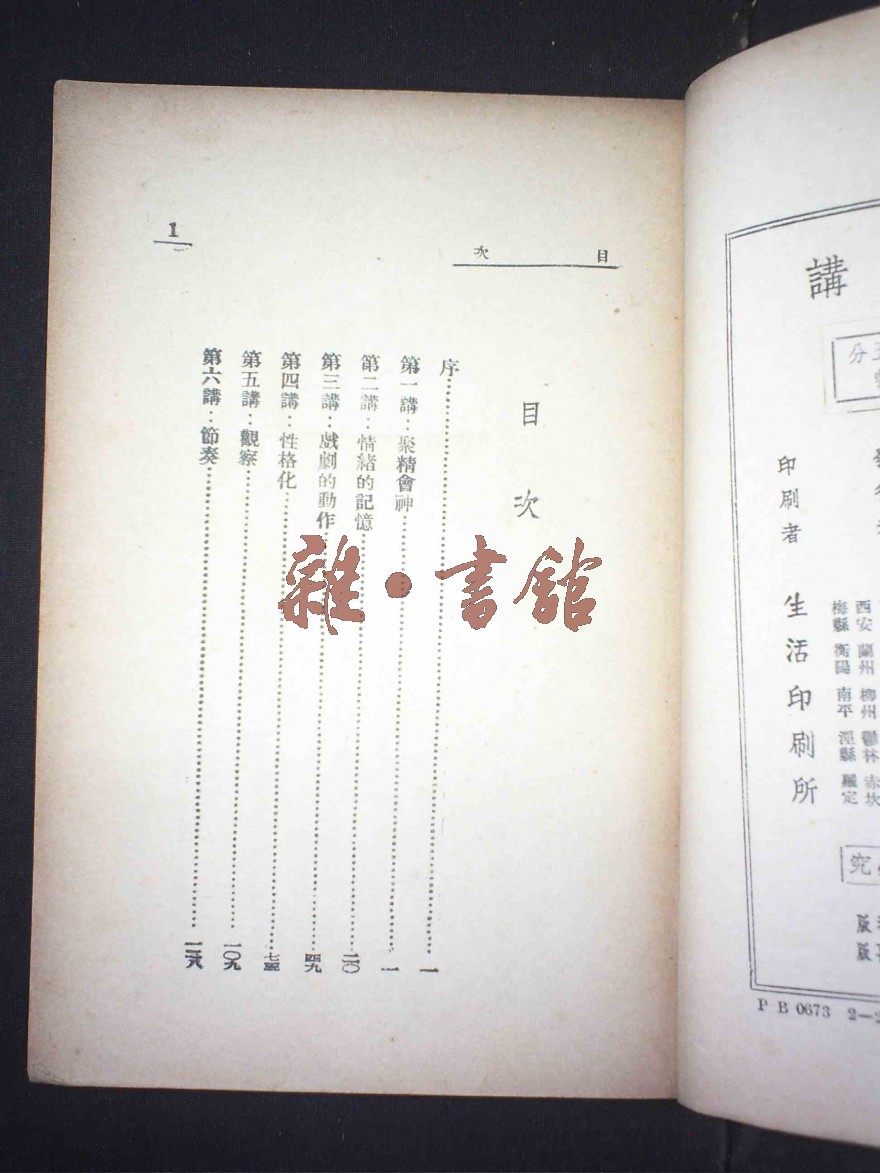 目次
1
目次
序……一
第一講：聚精會神……一
第二講：情緒的記憶……二〇
第三講：戲劇的動作……四九
第四講：性格化……
第五講：觀察……一〇九
第六講：節奏……
雜·書館
講
分
西安 蘭州 柳州 鬱林 赤坎
梅縣 衡陽 南平 涇縣 羅定
印刷者 生活印刷所
究
版
版
P B 0673 2—